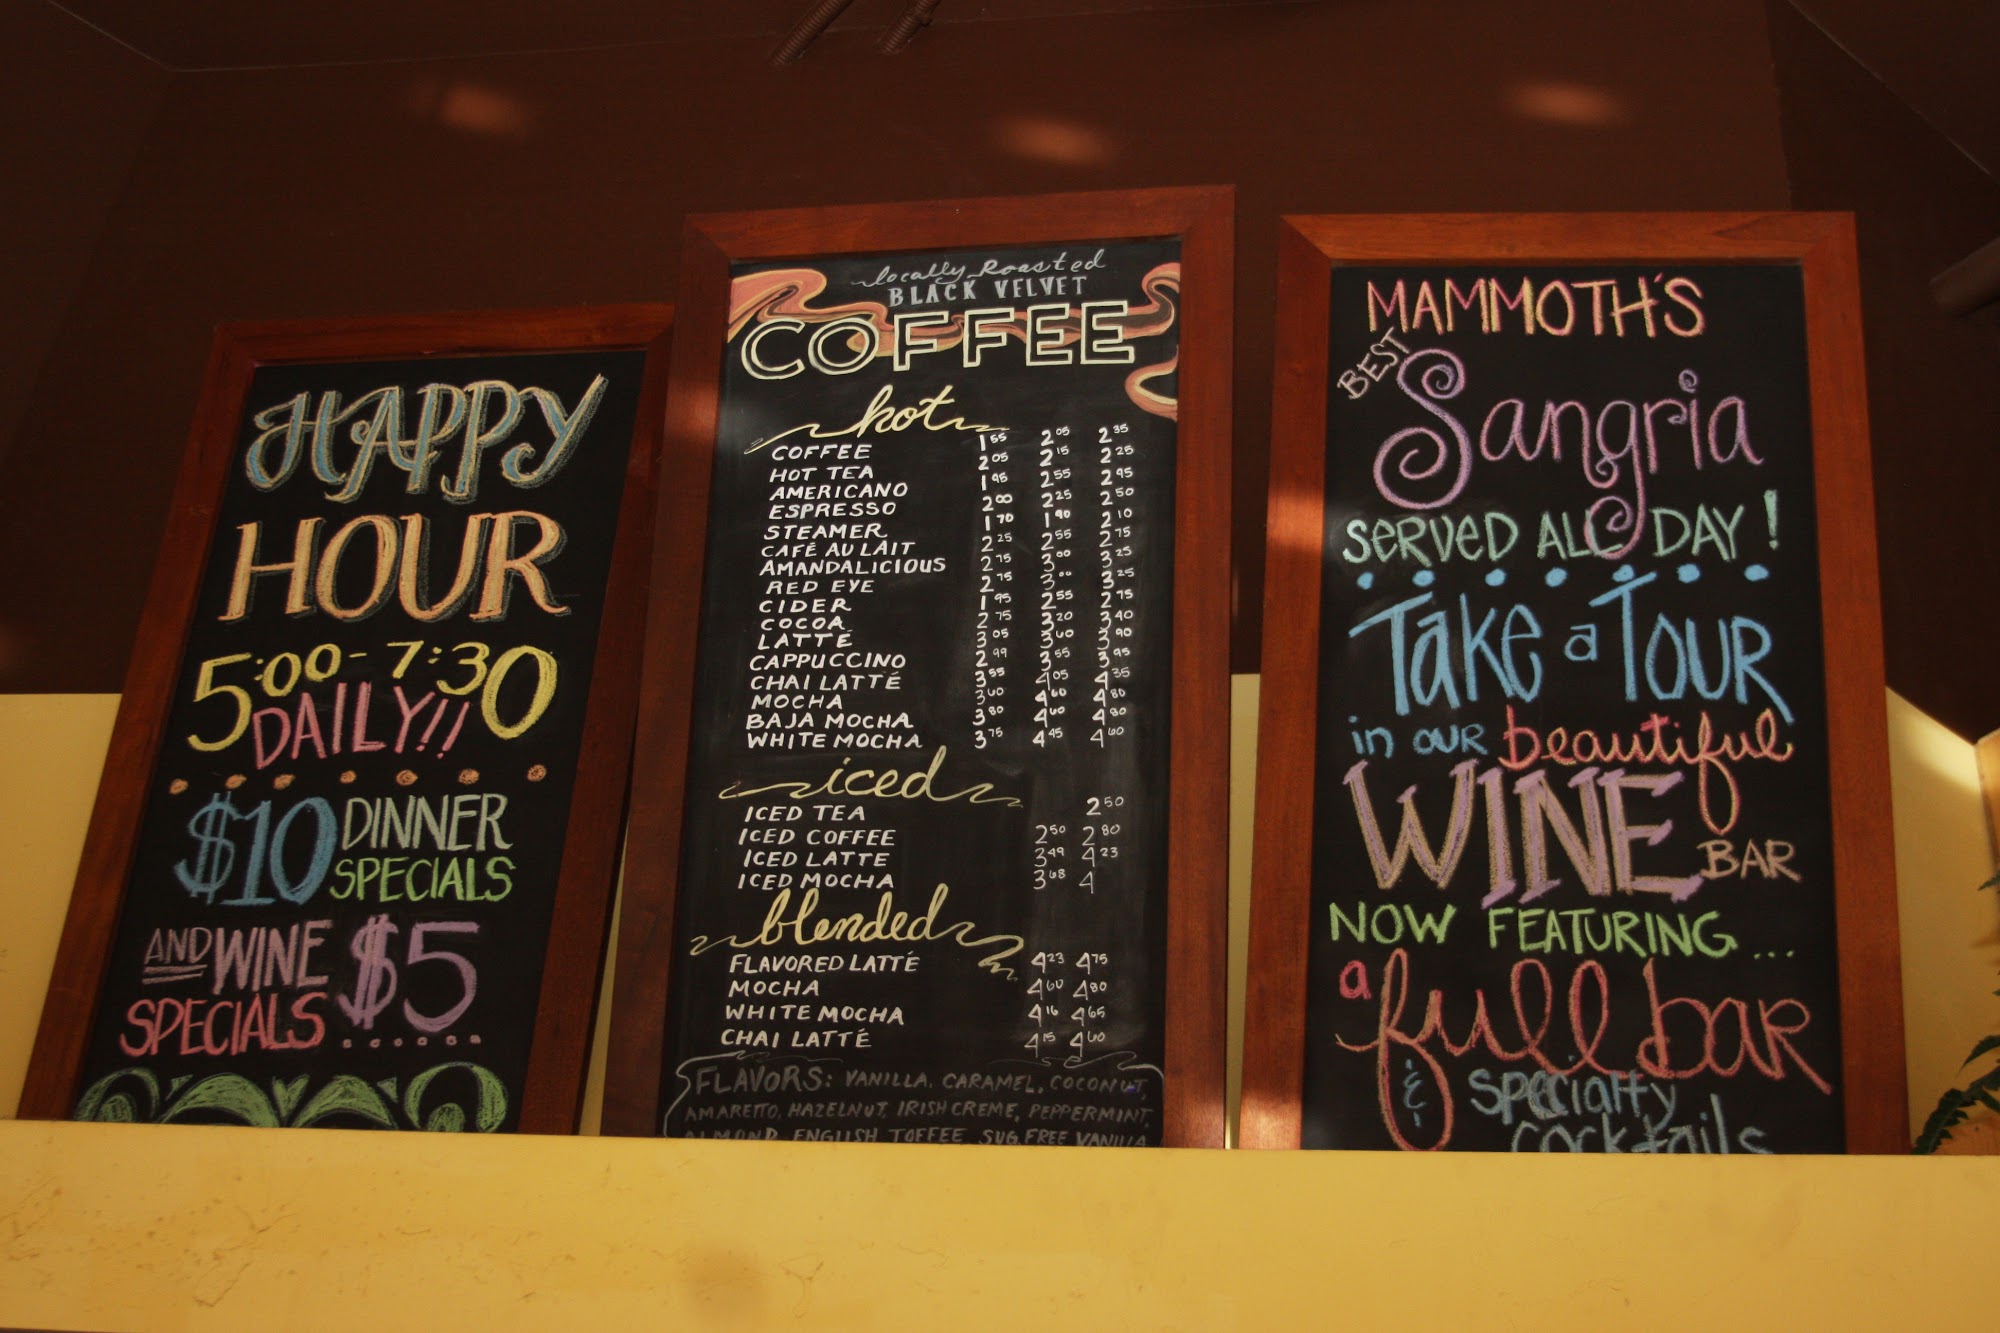 HAPPY
HOUR
5:00-7:30
DAILY!!
$10 DINNER
SPECIALS
AND WINE $5
SPECIALS
locally Roasted
BLACK VELVET
COFFEE
hot
COFFEE 1.55 2.05 2.35
HOT TEA 2.05 2.15 2.25
AMERICANO 1.95 2.55 2.95
ESPRESSO 2.00 2.25 2.50
STEAMER 1.70 1.90 2.10
CAFÉ AU LAIT 2.25 2.55 2.75
AMANDALICIOUS 2.75 3.00 3.25
RED EYE 2.75 3.00 3.25
CIDER 1.95 2.55 2.75
COCOA 2.75 3.20 3.40
LATTÉ 3.05 3.60 3.90
CAPPUCCINO 2.99 3.55 3.95
CHAI LATTÉ 3.55 4.05 4.35
MOCHA 3.60 4.60 4.80
BAJA MOCHA 3.80 4.60 4.80
WHITE MOCHA 3.75 4.45 4.60
iced
ICED TEA 2.50
ICED COFFEE 2.50 2.80
ICED LATTE 3.49 4.23
ICED MOCHA 3.68 4
blended
FLAVORED LATTÉ 4.23 4.75
MOCHA 4.60 4.80
WHITE MOCHA 4.16 4.65
CHAI LATTÉ 4.15 4.60
FLAVORS: VANILLA, CARAMEL, COCONUT,
AMARETTO, HAZELNUT, IRISH CREME, PEPPERMINT,
ALMOND, ENGLISH TOFFEE, SUG FREE VANILLA
MAMMOTH'S
BEST
Sangria
SERVED ALL DAY!
Take a TOUR
in our beautiful
WINE BAR
NOW FEATURING...
a full bar
& specialty
cocktails